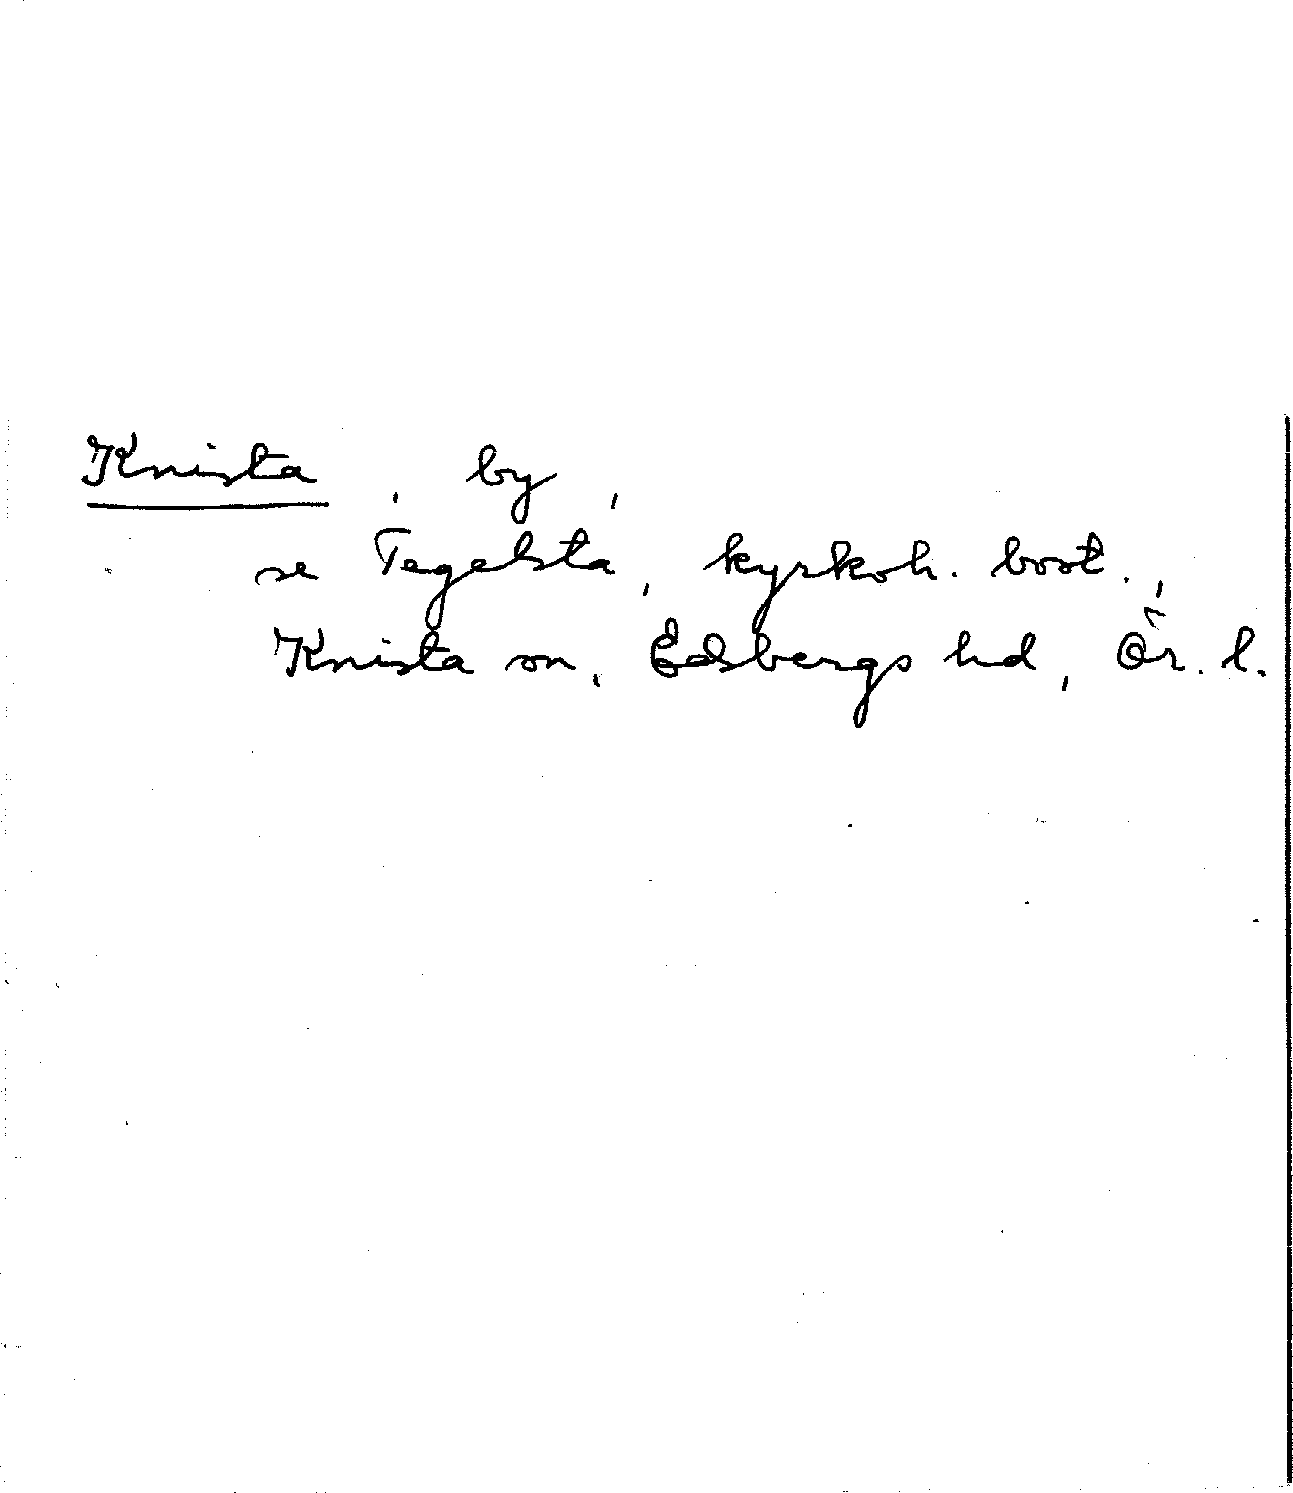 Knista, by,
se Tegelsta, kyrkoh. bost.,
Knista sn, Edsbergs hd, Ör. l.